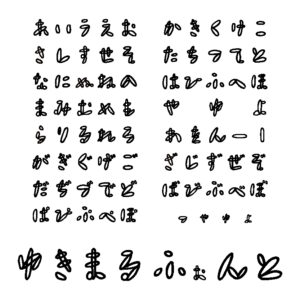 あいうえお かきくけこ
さしすせそ たちつてと
なにぬねの はひふへほ
まみむめも や ゆ よ
らりるれろ わをんー!
がぎぐげご ざじずぜぞ
だぢづでど ばびぶべぼ
ぱぴぷぺぽ っゃゅょ
ゆきまるふぉんと